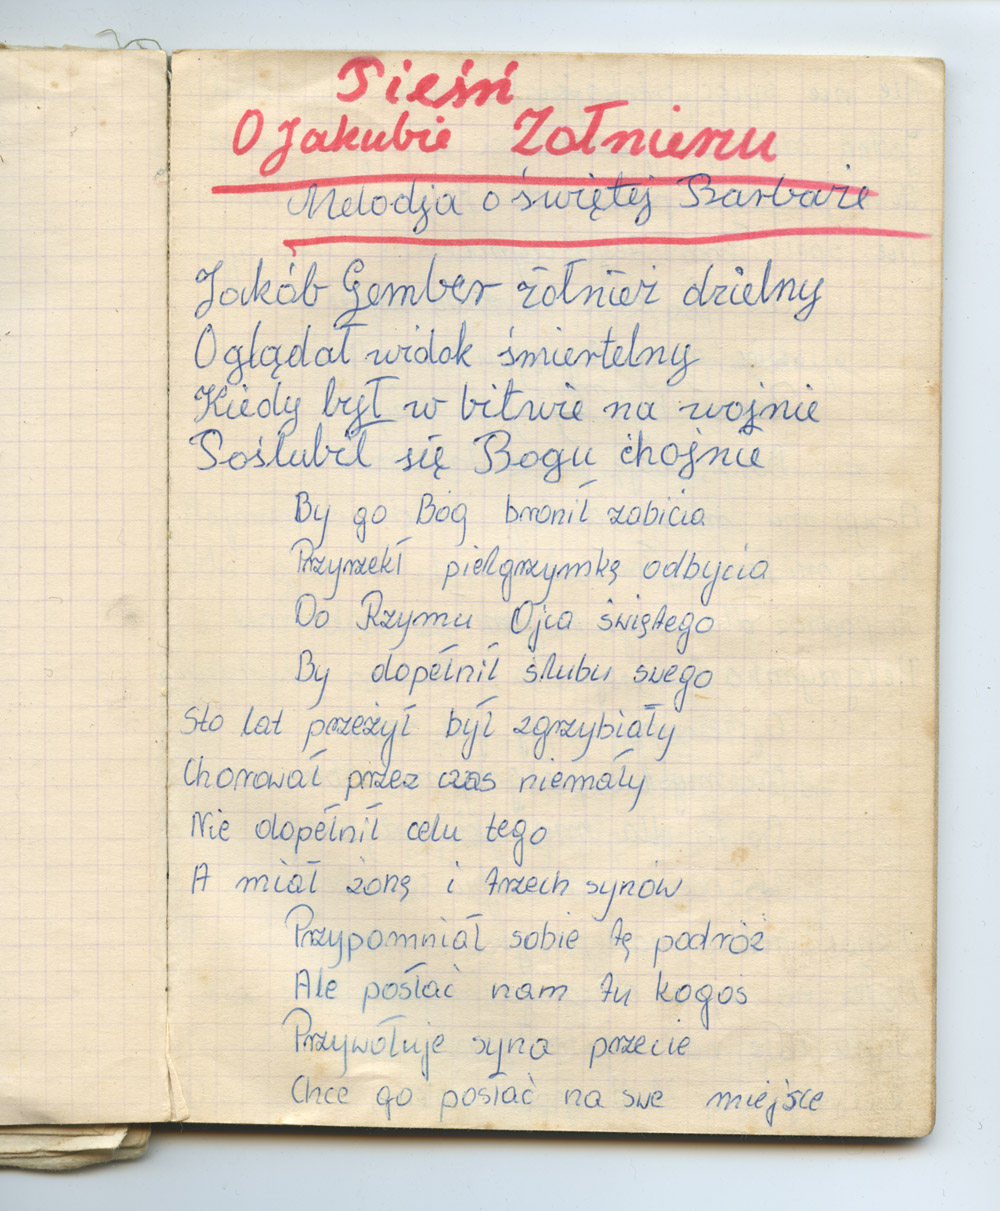 Pieśń
O Jakubie Żołnierzu
Melodja o świętej Barbaże
Jakób Gember żółnież dzielny
Oglądał widok śmiertelny
Kiedy był w bitwie na wojnie
Poślubił się Bogu chojnie
By go Bóg bronił zabicia
Przyrzekł pielgrzymkę odbycia
Do Rzymu Ojca świętego
By dopełnił ślubu swego
Sto lat przeżył był zgrzybiały
Chorował przez czas niemały
Nie dopełnił celu tego
A miał żonę i trzech synów
Przypomniał sobie tę podróż
Ale posłać nam tu kogos
Przywołuje syna przecie
Chce go posłać na swe miejsce